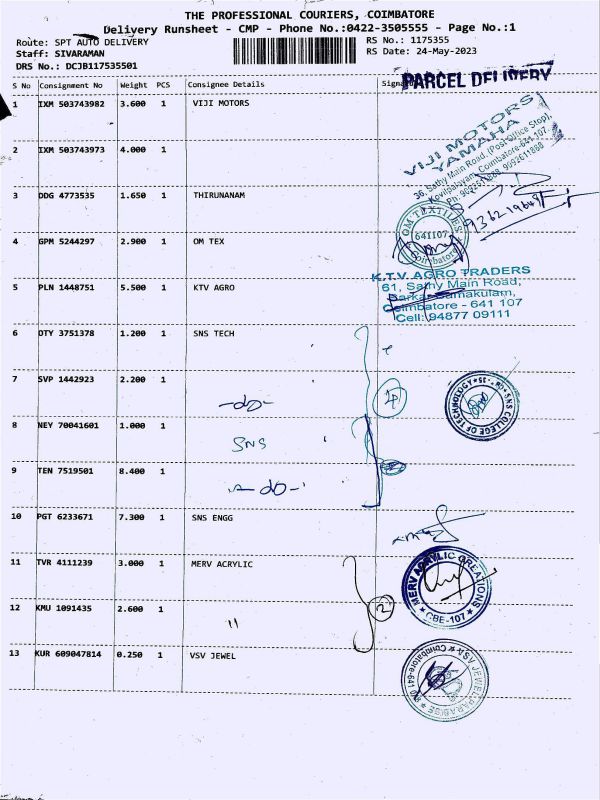 THE PROFESSIONAL COURIERS, COIMBATORE
Delivery Runsheet - CMP - Phone No.:0422-3505555 - Page No.:1
Route: SPT AUTO DELIVERY
RS No.: 1175355
Staff: SIVARAMAN
RS Date: 24-May-2023
DRS No.: DCJB117535501
PARCEL DELIVERY
S No Consignment No Weight PCS Consignee Details
1 IXM 503743982 3.600 1 VIJI MOTORS
VIJI MOTORS
YAMAHA
36, Sathy Main Road, (Post Office Stop),
Kovilpalayam, Coimbatore-641 107
2 IXM 503743973 4.000 1
3 DDG 4773535 1.650 1 THIRUNANAM
4 GPM 5244297 2.900 1 OM TEX
OM TEXTILES
641107
Coimbatore
5 PLN 1448751 5.500 1 KTV AGRO
K.T.V. AGRO TRADERS
61, Sathy Main Road,
Sarkar Samakulam,
Coimbatore - 641 107
Cell: 94877 09111
6 DTY 3751378 1.200 1 SNS TECH
7 SVP 1442923 2.200 1
-do-
SNS COLLEGE OF TECHNOLOGY
8 NEY 70041601 1.000 1
SNS
9 TEN 7519501 8.400 1
-do-
10 PGT 6233671 7.300 1 SNS ENGG
11 TVR 4111239 3.000 1 MERV ACRYLIC
MERV ACRYLIC CREATIONS
CBE-107
12 KMU 1091435 2.600 1
"
2
13 KUR 609047814 0.250 1 VSV JEWEL
VSV JEWEL PARADISE
Coimbatore-641